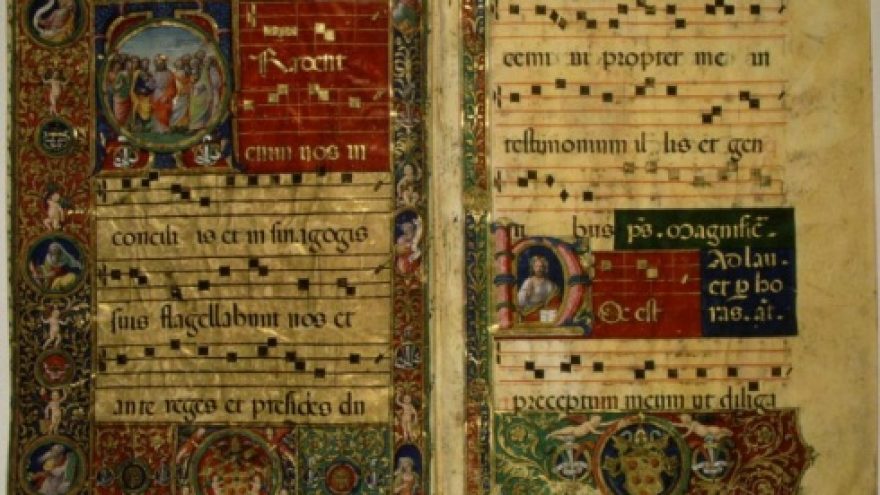 Radent
enim vos in
concili is et in sinagogis
suis flagellabunt vos et
ante reges et presides du
cemi ni propter me in
testimonium il lis et gen
ti bus ps. Magnific̄.
Ad lau.
et p̱ ho
ras. a͞t.
Oc est
preceptum meum ut diliga